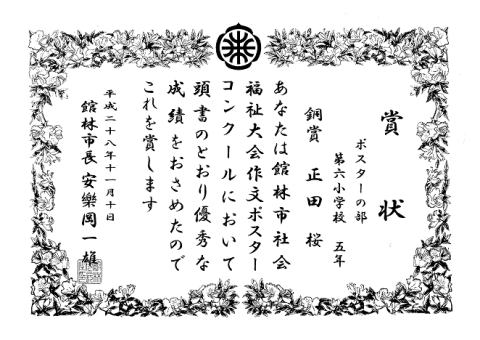 賞状
ポスターの部
第六小学校 五年
銅賞 正田 桜
あなたは館林市社会
福祉大会作文ポスター
コンクールにおいて
頭書のとおり優秀な
成績をおさめたので
これを賞します
平成二十八年十一月十日
館林市長 安樂岡一雄